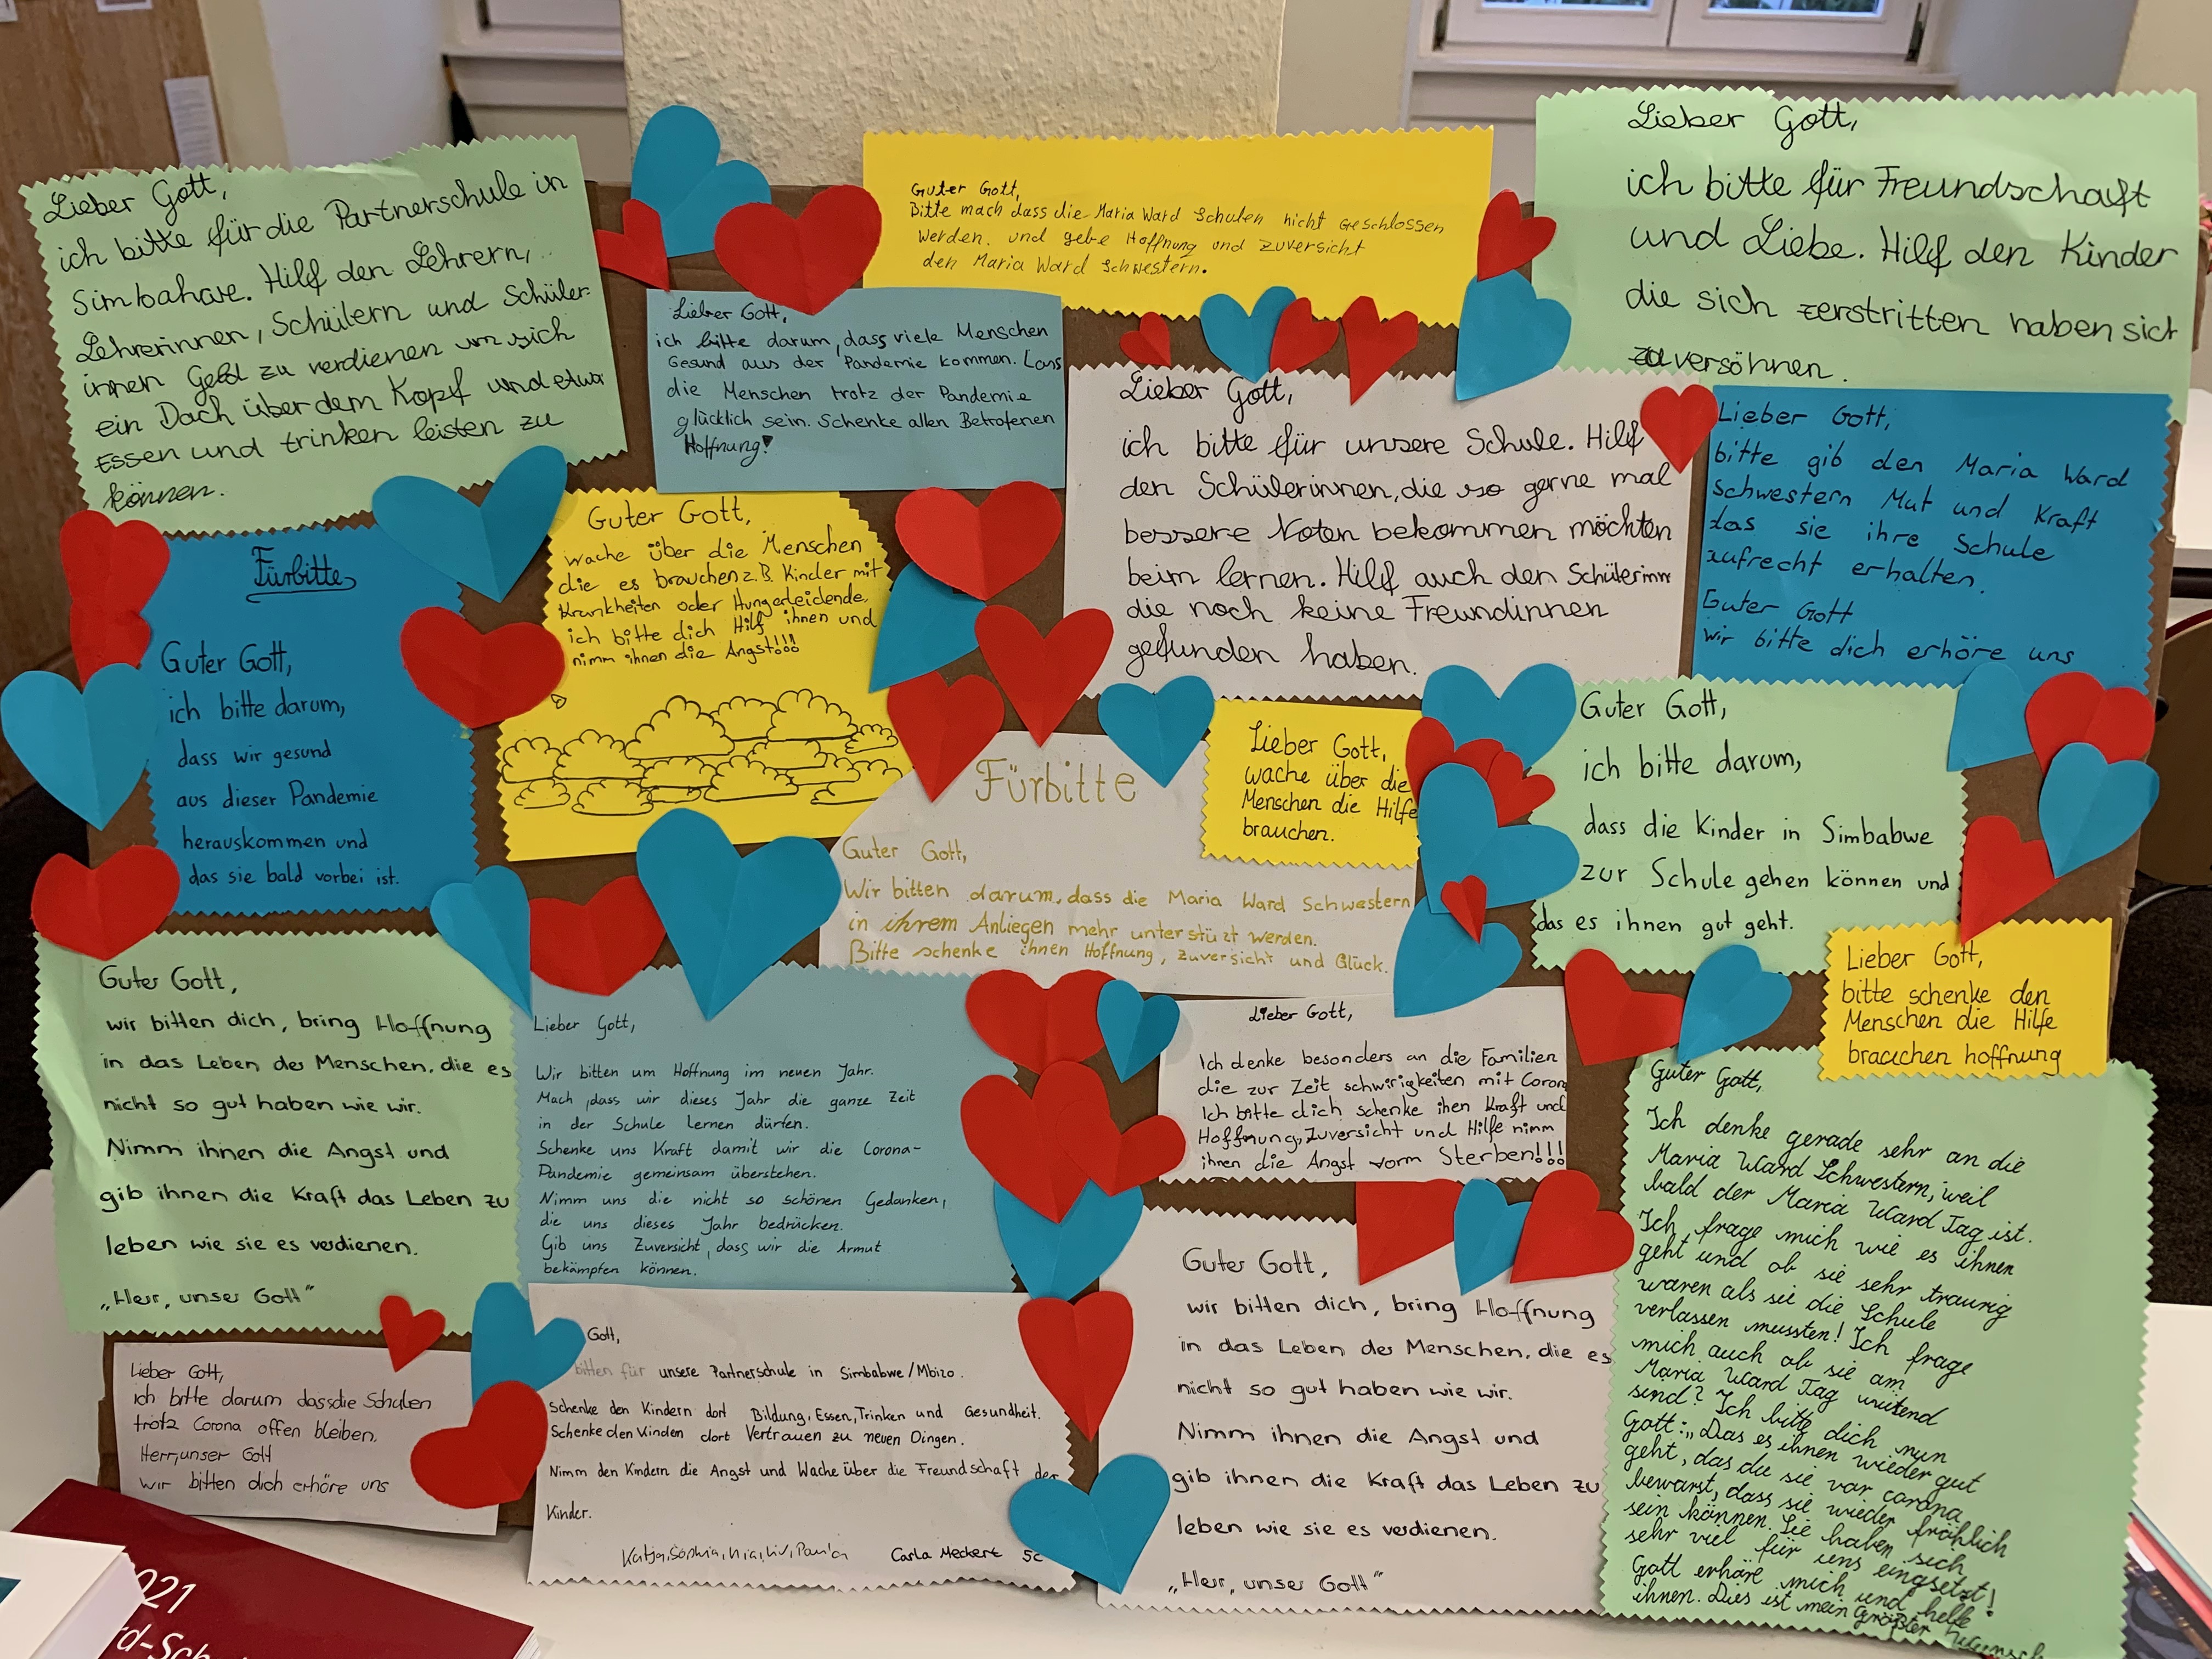 Lieber Gott,
ich bitte für die Partnerschule in
Simbahwe. Hilf den Lehrern,
Lehrerinnen, Schülern und Schüler-
innen Geld zu verdienen um sich
ein Dach über dem Kopf und etwas
Essen und trinken leisten zu
können.
Lieber Gott,
ich bitte darum, dass viele Menschen
Gesund aus der Pandemie kommen. Lass
die Menschen trotz der Pandemie
glücklich sein. Schenke allen Betrofenen
Hoffnung!
Guter Gott,
Bitte mach dass die Maria Ward Schulen nicht geschlossen
werden. und gebe Hoffnung und zuversicht
den Maria Ward Schwestern.
Lieber Gott,
ich bitte für Freundschaft
und Liebe. Hilf den Kinder
die sich zerstritten haben sich
zu versöhnen.
Lieber Gott,
ich bitte für unsere Schule. Hilf
den Schülerinnen, die so gerne mal
bessere Noten bekommen möchten
beim lernen. Hilf auch den Schülerinn
die noch keine Freundinnen
gefunden haben.
Lieber Gott,
bitte gib den Maria Ward
schwestern Mut und Kraft
das sie ihre Schule
aufrecht erhalten.
Guter Gott
wir bitte dich erhöre uns
Fürbitte
Guter Gott,
ich bitte darum,
dass wir gesund
aus dieser Pandemie
herauskommen und
das sie bald vorbei ist.
Guter Gott,
wache über die Menschen
die es brauchen z.B. Kinder mit
Krankheiten oder Hungerleidende,
ich bitte dich Hilf ihnen und
nimm ihnen die Angst!!!
Fürbitte
Guter Gott,
Wir bitten darum, dass die Maria Ward Schwestern
in ihrem Anliegen mehr unterstüzt werden.
Bitte schenke ihnen Hoffnung, zuversicht und Glück.
Lieber Gott,
wache über die
Menschen die Hilfe
brauchen.
Guter Gott,
ich bitte darum,
dass die Kinder in Simbabwe
zur Schule gehen können und
das es ihnen gut geht.
Lieber Gott,
bitte schenke den
Menschen die Hilfe
brauchen hoffnung
Guter Gott,
wir bitten dich, bring Hoffnung
in das Leben der Menschen, die es
nicht so gut haben wie wir.
Nimm ihnen die Angst und
gib ihnen die Kraft das Leben zu
leben wie sie es verdienen.
„Herr, unser Gott"
Lieber Gott,
Wir bitten um Hoffnung im neuen Jahr.
Mach, dass wir dieses Jahr die ganze Zeit
in der Schule lernen dürfen.
Schenke uns Kraft damit wir die Corona-
Pandemie gemeinsam überstehen.
Nimm uns die nicht so schönen Gedanken,
die uns dieses Jahr bedrücken.
Gib uns Zuversicht, dass wir die Armut
bekämpfen können.
Lieber Gott,
Ich denke besonders an die Familien
die zur Zeit schwirigkeiten mit Coron
Ich bitte dich schenke ihen Kraft und
Hoffnung, Zuversicht und Hilfe nimm
ihnen die Angst vorm Sterben!!!
Guter Gott,
Ich denke gerade sehr an die
Maria Ward Schwestern, weil
bald der Maria Ward Tag ist.
Ich frage mich wie es ihnen
geht und ob sie sehr traurig
waren als sie die Schule
verlassen mussten! Ich frage
mich auch ob sie am
Maria Ward Tag wütend
sind? Ich bitte dich nun
Gott: „Das es ihnen wieder gut
geht, das du sie vor corona
bewarst, dass sie wieder fröhlich
sein können. Sie haben sich
sehr viel für uns eingsetzt!
Gott erhöre mich und helfe
ihnen. Dies ist mein größter Wunsch
Lieber Gott,
ich bitte darum dassdie Schulen
trotz Corona offen bleiben.
Herr, unser Gott
wir bitten dich erhöre uns
Gott,
bitten für unsere Partnerschule in Simbabwe/Mbizo.
Schenke den Kindern dort Bildung, Essen, Trinken und Gesundheit.
Schenke den Kinden dort Vertrauen zu neuen Dingen.
Nimm den Kindern die Angst und Wache über die Freundschaft der
Kinder.
Katja, Sophia, Liv, Carla Meckert 5c
Guter Gott,
wir bitten dich, bring Hoffnung
in das Leben der Menschen, die es
nicht so gut haben wie wir.
Nimm ihnen die Angst und
gib ihnen die Kraft das Leben zu
leben wie sie es verdienen.
„Herr, unser Gott"
021
rd-Sch